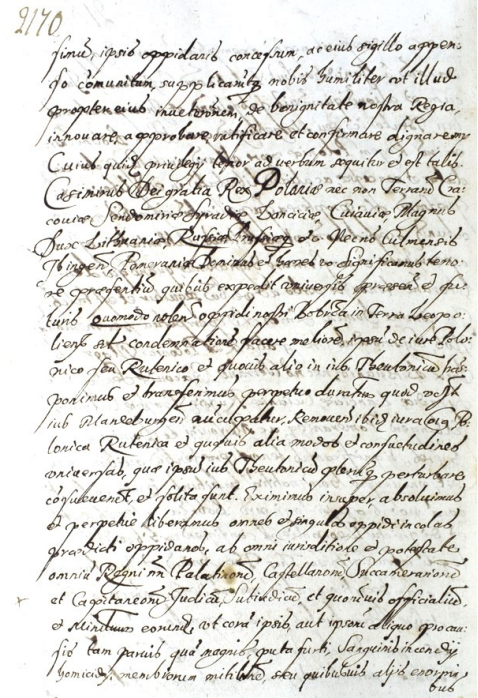 2170
simũ, ipsis oppidanis concessum, ac eius sigillo appen-
so comunitum, supplicantẽ nobis humiliter vt illud
propter eius inuetrationem, de benignitate nostra Regia,
innouare, approbare, ratificare et confirmare dignaremr
Cuius quid priuilegij tenor ad verbum sequitur et est talis.
Casimirus Dei gratia Rex Poloniæ nec non Terrarũ Cra-
couiæ Sendomiriæ Syradiæ Lanciciæ Cuiauiæ Magnus
Dux Lithuaniæ Russiæ Prussiæq ac Culmensis
Pomeraniæ Dominus et hæres significamus teno-
re præsentiũ quibus expedit vniuersis præsen et fu-
turis Quomodo volen oppidi nostri Bobrca in Terra Leopo
lien sit condemnationẽ facere meliorẽ, ipsũ de iure Polo-
nico seu Rutenico et quouis alio in ius Theutonicũ
ponimus et transferimus perpetuo duraturũ quod
ius Maydeburgen nũcupatur, Remouen ibidẽ iura Po
lonica Rutenica et quæuis alia modos et consuetudines
vniuersas, quæ ipsũ ius Theutonicũ plerũq perturbare
cõsueuerũt, et solita sunt. Eximimus insuper, absoluimus
et perpetue liberamus omnes et singulos oppidi incolas
prædicti oppidanos, ab omni iurisditione et potestate
omniũ Regni nri Palatinorũ, Castellanorũ Succamerariorũ
et Capitaneorũ Judicũ, Subiudicũ et quoruuis officialiũ,
et Ministrum eorundẽ, vt corã ipsis, aut ipsorũ aliquo pro cau-
sis tam paruis quã magnis, puta furti, Sanguinis incendij
homicidij, membrorum mutilatione, seu quibusuis alijs enormi
bus